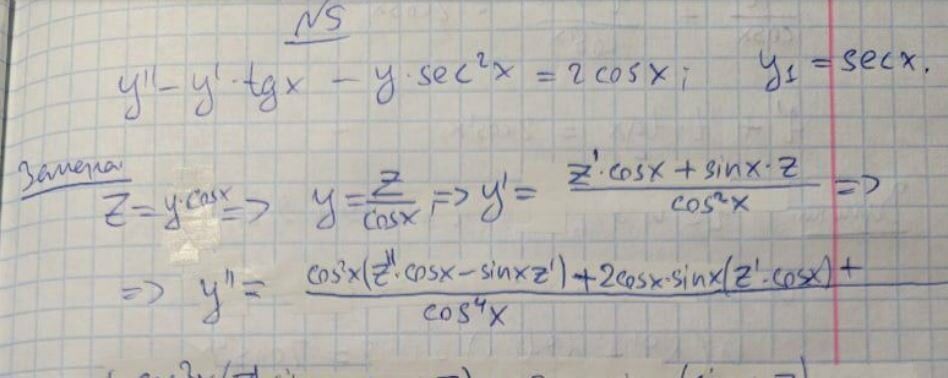 N5
y'' - y' · tgx - y · sec²x = 2cosx; y₁ = secx.
Замена
z = y·cosx => y = z/cosx; => y' = (z'·cosx + sinx·z)/cos²x =>
=> y'' = (cos²x(z''·cosx - sinxz') + 2cosx·sinx(z'·cosx) +)/cos⁴x